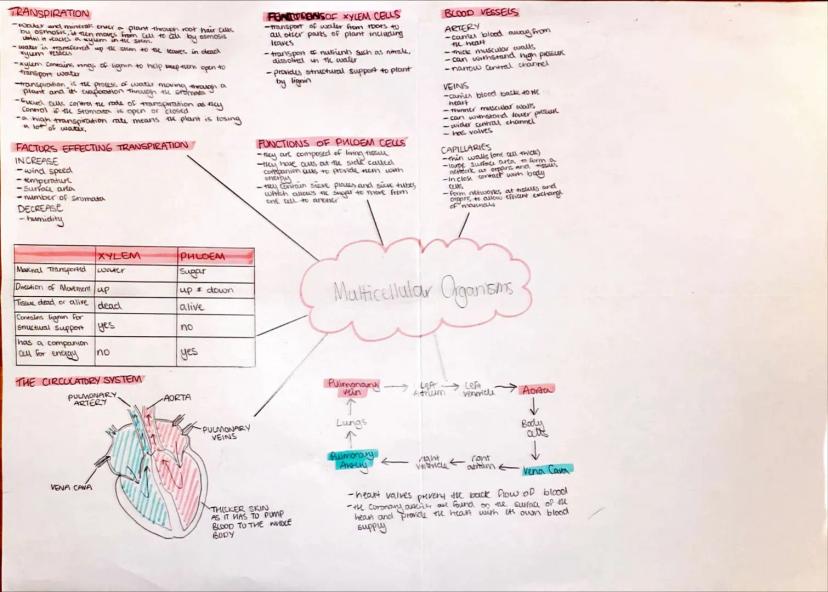 TRANSPIRATION
- water and minerals enter a plant through root hair cells
by osmosis, it then moves from cell to cell by osmosis
until it reaches a xylem in the stem.
- water is transferred up the stem to the leaves in dead
xylem vessels
- xylem contains rings of lignin to help keep them open to
transport water
- transpiration is the process of water moving through a
plant and its evaporation through the stomata
- guard cells control the rate of transpiration as they
control if the stomata is open or closed
- a high transpiration rate means the plant is losing
a lot of water.
FACTORS EFFECTING TRANSPIRATION
INCREASE
- wind speed
- temperature
- surface area
- number of stomata
DECREASE
- humidity
FUNCTIONS OF XYLEM CELLS
- transport of water from roots to
all other parts of plant including
leaves
- transport of nutrients such as nitrate,
dissolved in the water
- provides structural support to plant
by lignin
FUNCTIONS OF PHLOEM CELLS
- they are composed of living tissue
- they have cells at the side called
companion cells to provide them with
energy
- they contain sieve plates and sieve tubes
which allows the sugar to move from
one cell to another
BLOOD VESSELS
ARTERY
- carries blood away from
the heart
- thick muscular walls
- can withstand high pressure
- narrow central channel
VEINS
- carries blood back to the
heart
- thinner muscular walls
- can withstand lower pressure
- wider central channel
- has valves
CAPILLARIES
- thin walls (one cell thick)
- large surface area to form a
network at organs and tissues
- in close contact with body
cells
- form networks at tissues and
organs to allow efficient exchange
of materials
Multicellular Organisms
XYLEM PHLOEM
Material Transported water sugar
Direction of Movement up up + down
Tissue dead or alive dead alive
Contains lignin for
structural support yes no
has a companion
cell for energy no yes
THE CIRCULATORY SYSTEM
PULMONARY
ARTERY
AORTA
PULMONARY
VEINS
VENA CAVA
THICKER SKIN
AS IT HAS TO PUMP
BLOOD TO THE WHOLE
BODY
Pulmonary
Vein
Left
Atrium
Left
Ventricle
Aorta
Lungs
Body
cells
Pulmonary
Artery
right
ventricle
right
atrium
Vena Cava
- heart valves prevent the back flow of blood
- the coronary arteries are found on the surface of the
heart and provide the heart with its own blood
supply